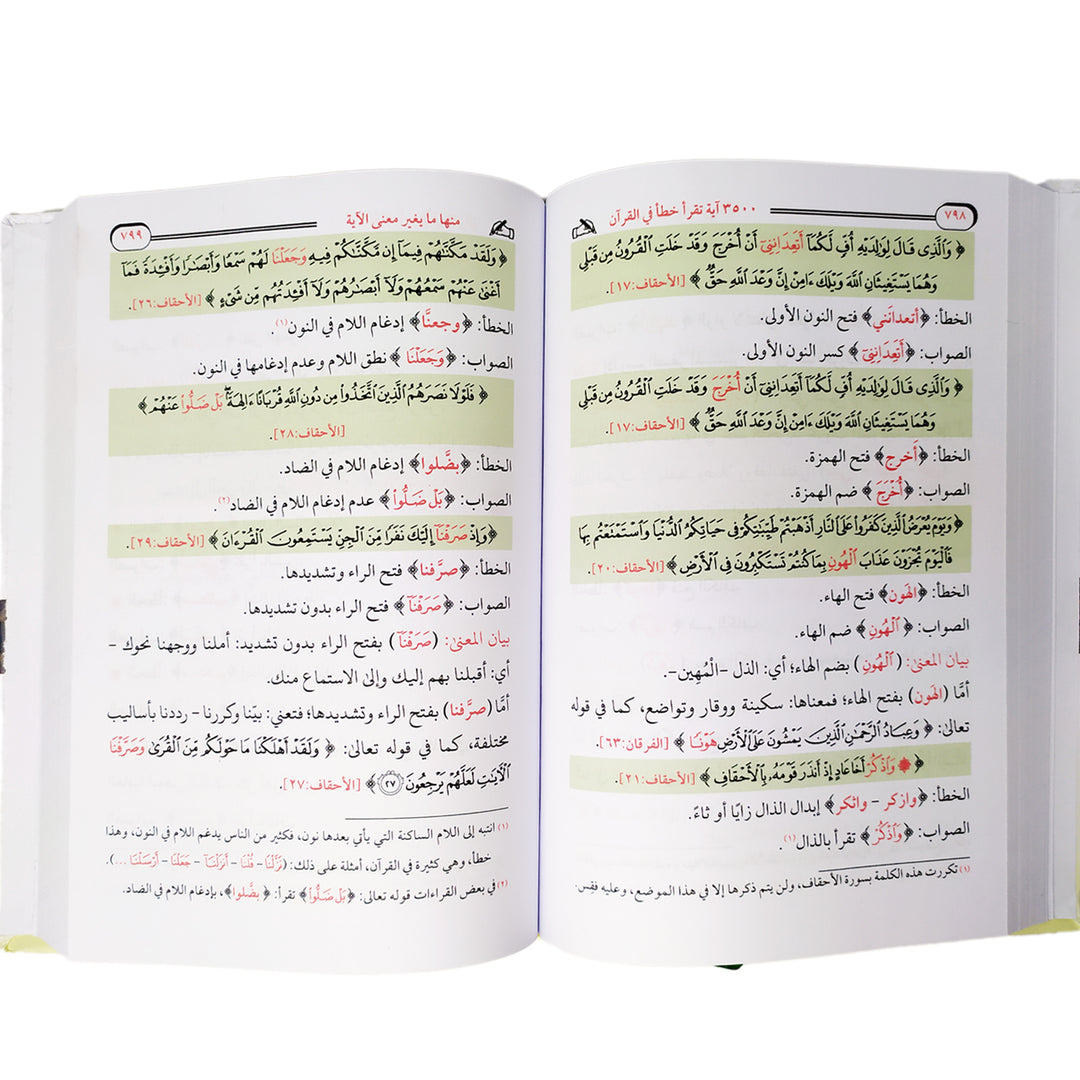 ٧٩٨
٣٥٠٠ آية تقرأ خطأ في القرآن
﴿ وَٱلَّذِى قَالَ لِوَٰلِدَيْهِ أُفٍّ لَّكُمَآ أَتَعِدَانِنِىٓ أَنْ أُخْرَجَ وَقَدْ خَلَتِ ٱلْقُرُونُ مِن قَبْلِى
وَهُمَا يَسْتَغِيثَانِ ٱللَّهَ وَيْلَكَ ءَامِنْ إِنَّ وَعْدَ ٱللَّهِ حَقٌّ ﴾ [الأحقاف:١٧].
الخطأ: ﴿أتعدانَني﴾ فتح النون الأولى.
الصواب: ﴿أَتَعِدَانِنِىٓ﴾ كسر النون الأولى.
﴿ وَٱلَّذِى قَالَ لِوَٰلِدَيْهِ أُفٍّ لَّكُمَآ أَتَعِدَانِنِىٓ أَنْ أُخْرَجَ وَقَدْ خَلَتِ ٱلْقُرُونُ مِن قَبْلِى
وَهُمَا يَسْتَغِيثَانِ ٱللَّهَ وَيْلَكَ ءَامِنْ إِنَّ وَعْدَ ٱللَّهِ حَقٌّ ﴾ [الأحقاف:١٧].
الخطأ: ﴿أَخرج﴾ فتح الهمزة.
الصواب: ﴿أُخْرَجَ﴾ ضم الهمزة.
﴿وَيَوْمَ يُعْرَضُ ٱلَّذِينَ كَفَرُوا۟ عَلَى ٱلنَّارِ أَذْهَبْتُمْ طَيِّبَٰتِكُمْ فِى حَيَاتِكُمُ ٱلدُّنْيَا وَٱسْتَمْتَعْتُم بِهَا
فَٱلْيَوْمَ تُجْزَوْنَ عَذَابَ ٱلْهُونِ بِمَا كُنتُمْ تَسْتَكْبِرُونَ فِى ٱلْأَرْضِ ﴾ [الأحقاف:٢٠].
الخطأ: ﴿الهَون﴾ فتح الهاء.
الصواب: ﴿ٱلْهُونِ﴾ ضم الهاء.
بيان المعنى: (ٱلْهُونِ) بضم الهاء؛ أي: الذل -الْمُهِين-.
أمَّا (الهَون) بفتح الهاء؛ فمعناها: سكينة ووقار وتواضع، كما في قوله
تعالى: ﴿ وَعِبَادُ ٱلرَّحْمَٰنِ ٱلَّذِينَ يَمْشُونَ عَلَى ٱلْأَرْضِ هَوْنًا ﴾ [الفرقان:٦٣].
﴿ ۞ وَٱذْكُرْ أَخَا عَادٍ إِذْ أَنذَرَ قَوْمَهُۥ بِٱلْأَحْقَافِ ﴾ [الأحقاف:٢١].
الخطأ: ﴿وازكر – واثكر﴾ إبدال الذال زايًا أو ثاءً.
الصواب: ﴿وَٱذْكُرْ﴾ تقرأ بالذال(١).
(١) تكررت هذه الكلمة بسورة الأحقاف، ولن يتم ذكرها إلا في هذا الموضع، وعليه فقِس.
٧٩٩
منها ما يغير معنى الآية
﴿ وَلَقَدْ مَكَّنَّٰهُمْ فِيمَآ إِن مَّكَّنَّٰكُمْ فِيهِ وَجَعَلْنَا لَهُمْ سَمْعًا وَأَبْصَٰرًا وَأَفْـِٔدَةً فَمَآ
أَغْنَىٰ عَنْهُمْ سَمْعُهُمْ وَلَآ أَبْصَٰرُهُمْ وَلَآ أَفْـِٔدَتُهُم مِّن شَىْءٍ ﴾ [الأحقاف:٢٦].
الخطأ: ﴿وجعنَّا﴾ إدغام اللام في النون(١).
الصواب: ﴿وَجَعَلْنَا﴾ نطق اللام وعدم إدغامها في النون.
﴿ فَلَوْلَا نَصَرَهُمُ ٱلَّذِينَ ٱتَّخَذُوا۟ مِن دُونِ ٱللَّهِ قُرْبَانًا ءَالِهَةًۢ بَلْ ضَلُّوا۟ عَنْهُمْ ﴾
[الأحقاف:٢٨].
الخطأ: ﴿بضَّلوا﴾ إدغام اللام في الضاد.
الصواب: ﴿بَلْ ضَلُّوا۟﴾ عدم إدغام اللام في الضاد(٢).
﴿وَإِذْ صَرَفْنَآ إِلَيْكَ نَفَرًا مِّنَ ٱلْجِنِّ يَسْتَمِعُونَ ٱلْقُرْءَانَ ﴾ [الأحقاف:٢٩].
الخطأ: ﴿صرَّفنا﴾ فتح الراء وتشديدها.
الصواب: ﴿صَرَفْنَآ﴾ فتح الراء بدون تشديدها.
بيان المعنى: (صَرَفْنَآ) بفتح الراء بدون تشديد: أملنا ووجهنا نحوك –
أي: أقبلنا بهم إليك وإلى الاستماع منك.
أمَّا (صرَّفنا) بفتح الراء وتشديدها؛ فتعني: بيّنا وكررنا – رددنا بأساليب
مختلفة، كما في قوله تعالى: ﴿ وَلَقَدْ أَهْلَكْنَا مَا حَوْلَكُم مِّنَ ٱلْقُرَىٰ وَصَرَّفْنَا
ٱلْـَٔايَٰتِ لَعَلَّهُمْ يَرْجِعُونَ ٢٧ ﴾ [الأحقاف:٢٧].
(١) انتبه إلى اللام الساكنة التي يأتي بعدها نون، فكثير من الناس يدغم اللام في النون، وهذا
خطأ، وهي كثيرة في القرآن، أمثلة على ذلك: (نَزَّلْنَا – قُلْنَا – أَنزَلْنَآ – جَعَلْنَا – أَرْسَلْنَا ...).
(٢) في بعض القراءات قوله تعالى: ﴿بَلْ ضَلُّوا۟﴾ تقرأ: ﴿بضَّلوا﴾، بإدغام اللام في الضاد.